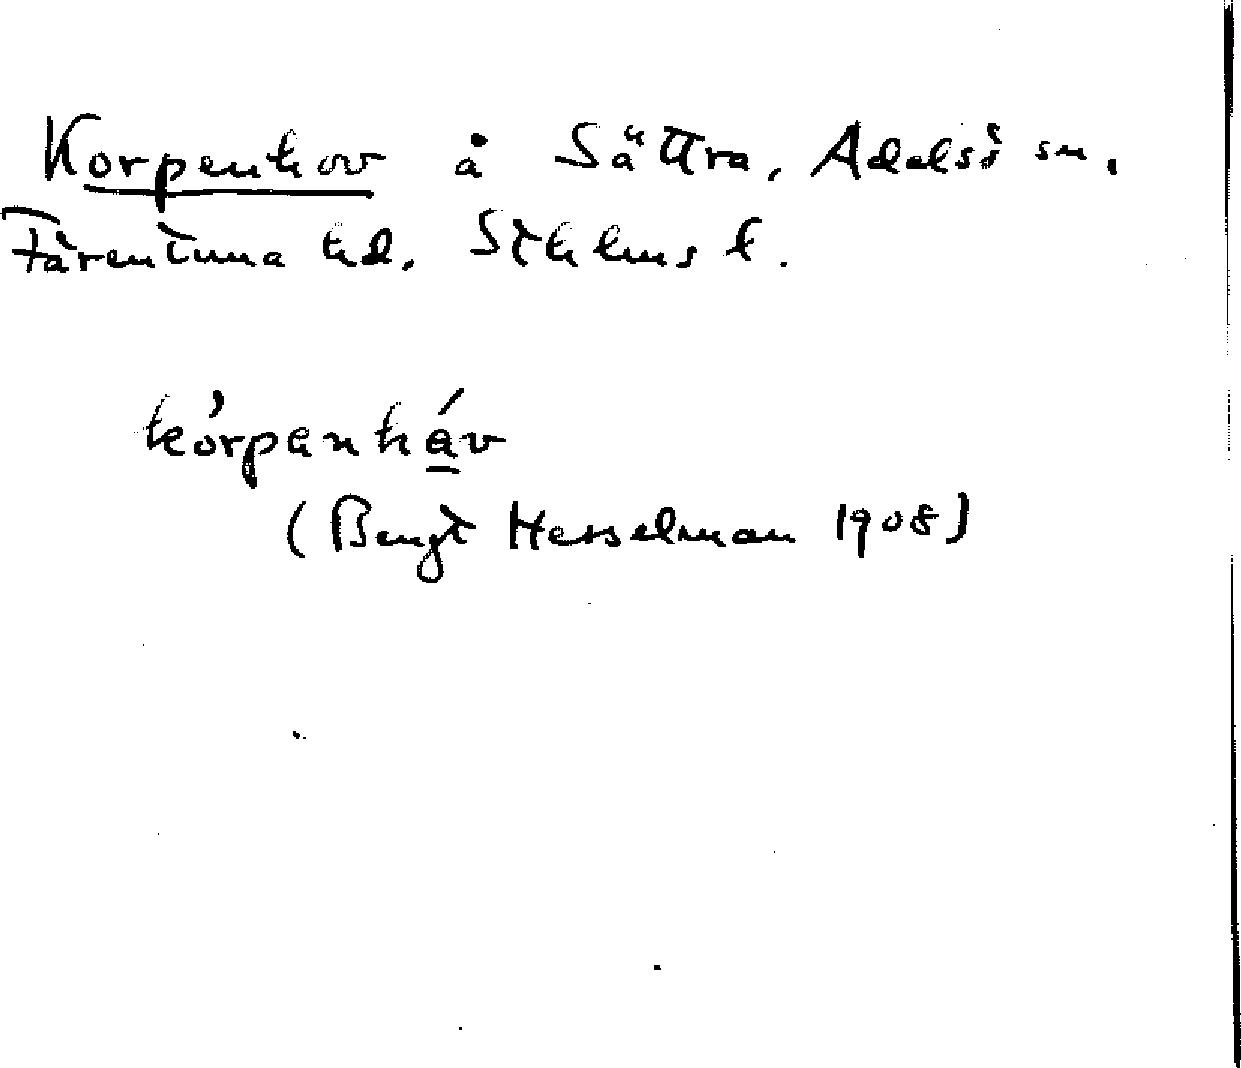 Korpenhov å Sättra, Adelsö sn.
Färentuna hd. Sthlms l.
kórpenháv
(Bengt Hesselman 1908)